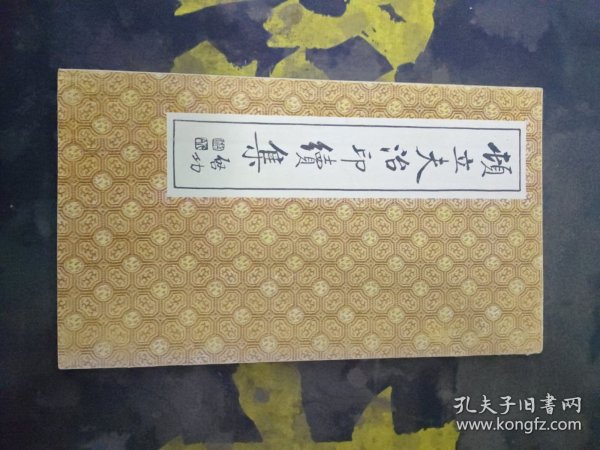 頓立夫治印續集
启功
孔夫子旧書网
www.kongfz.com